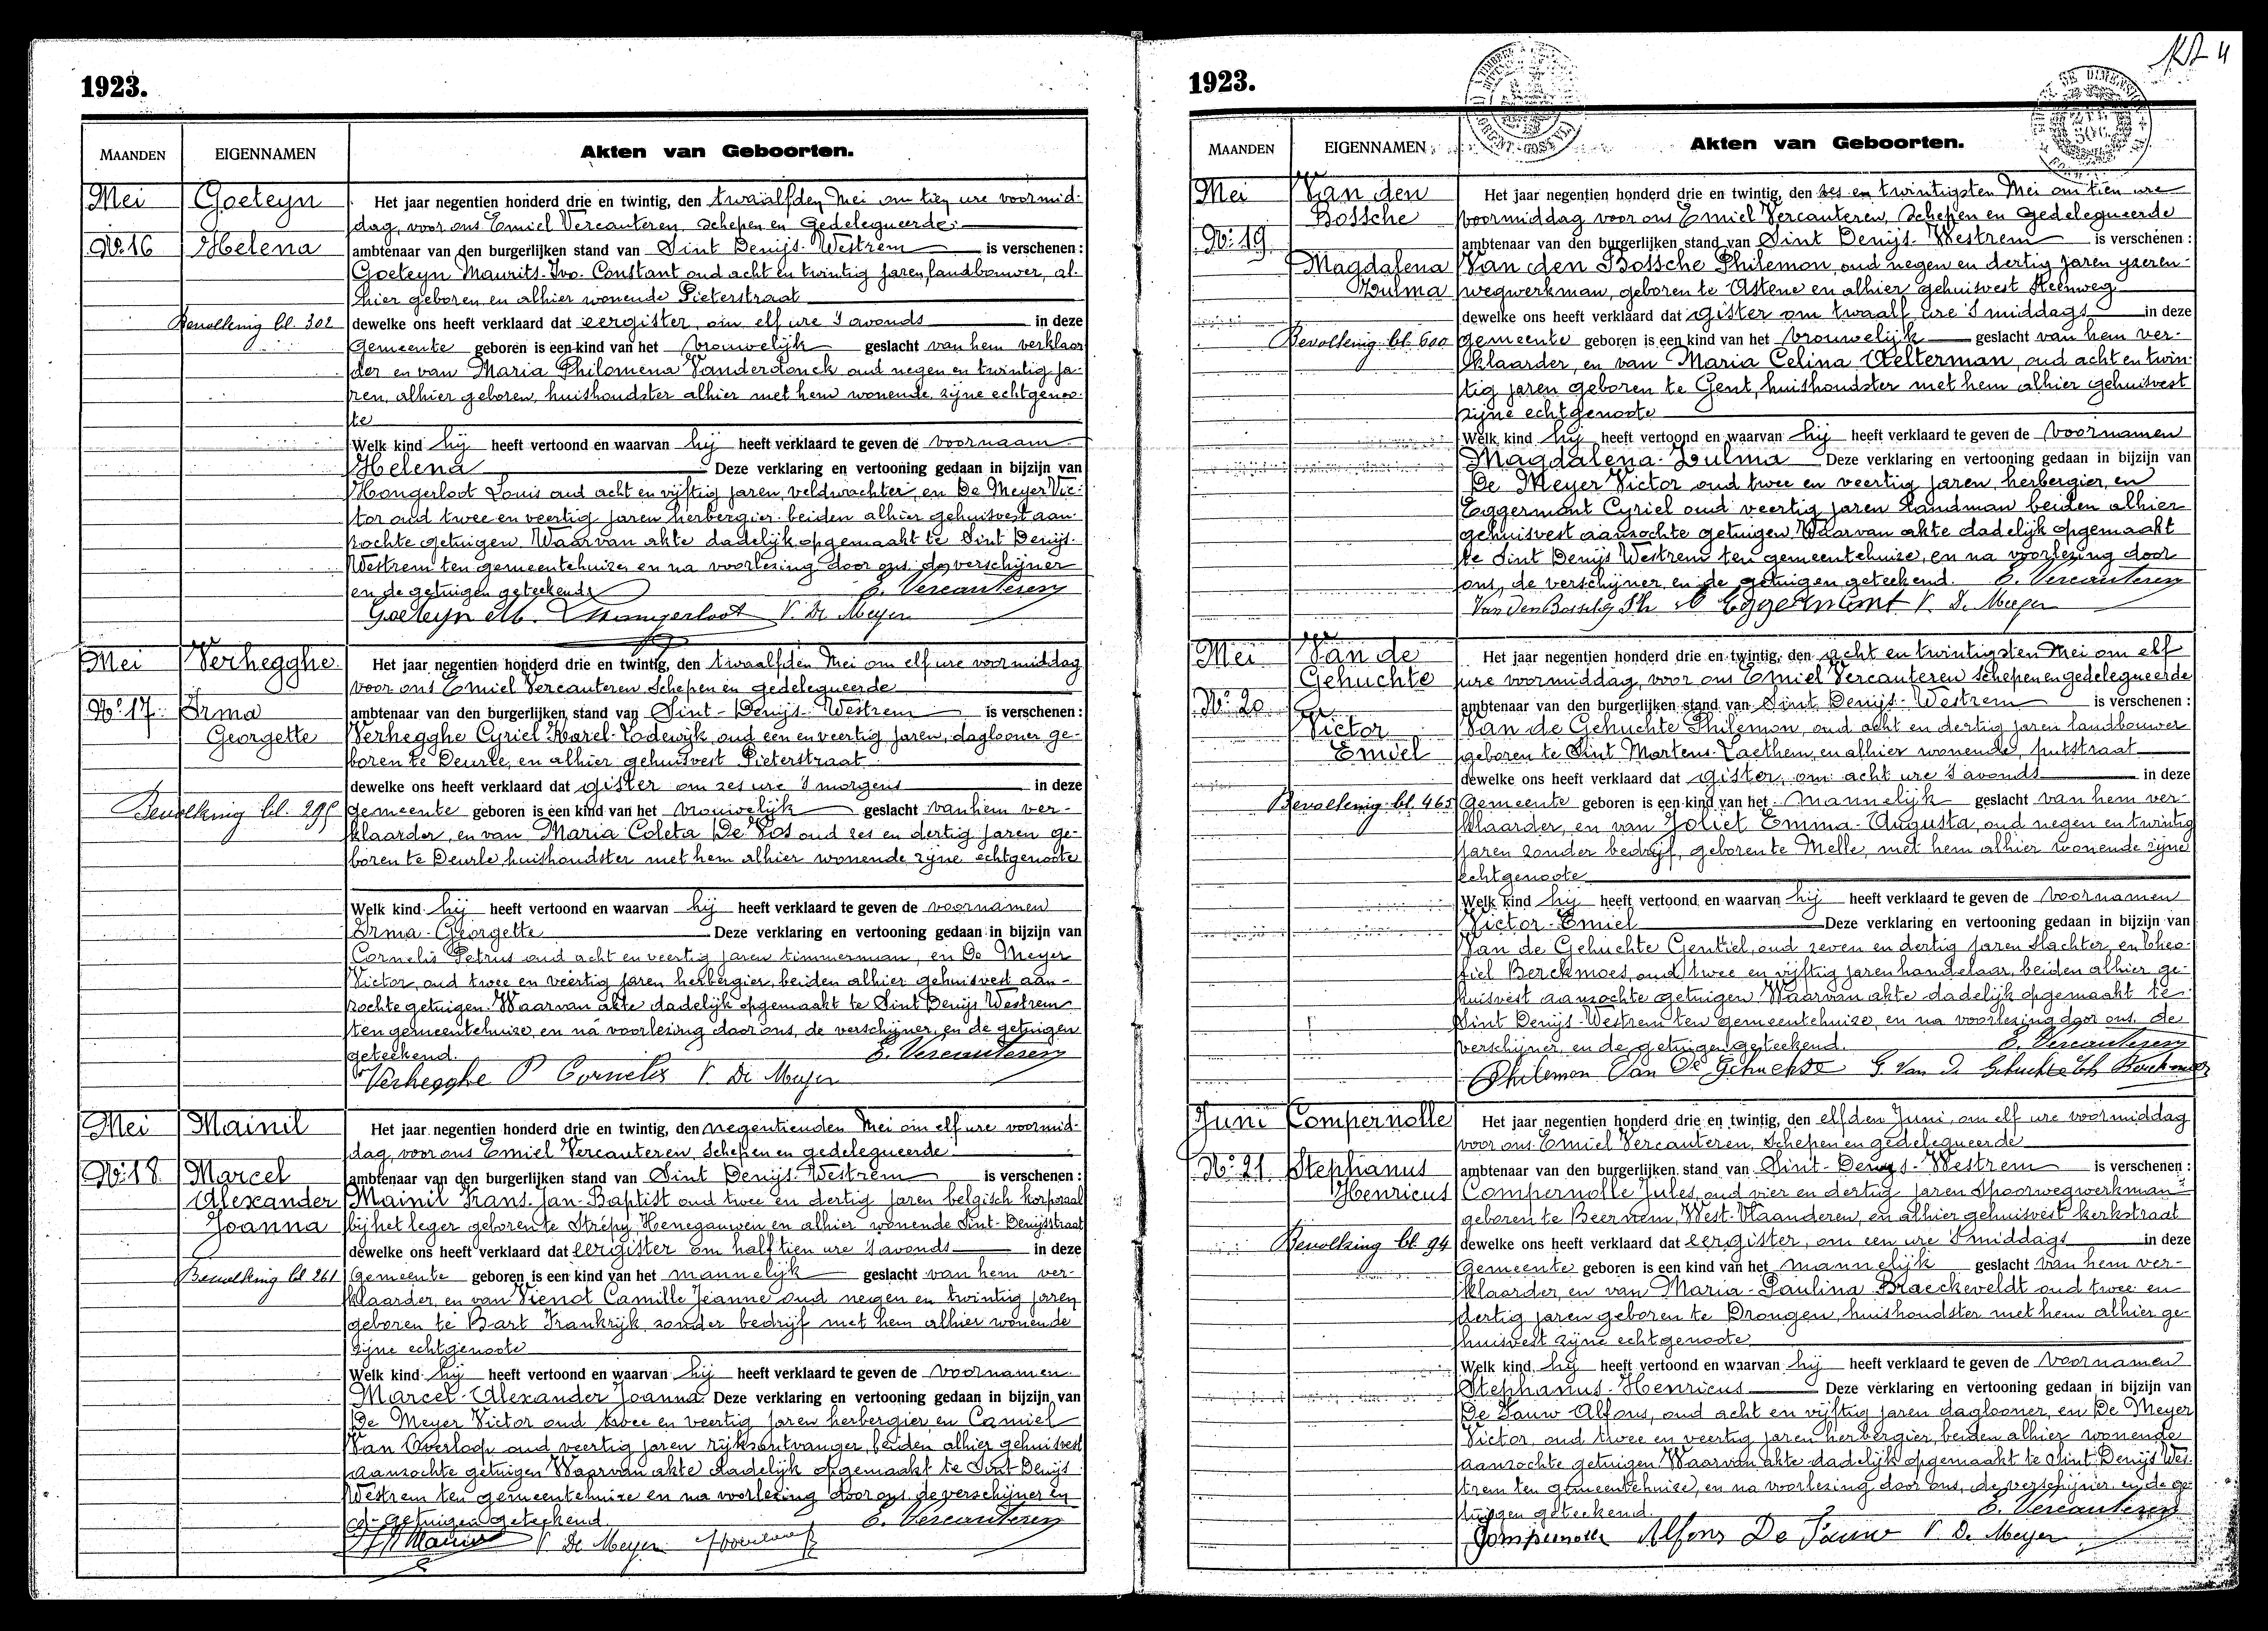 1923.
MAANDEN EIGENNAMEN Akten van Geboorten.
Mei Goeteyn Het jaar negentien honderd drie en twintig, den twaalfden Mei om tien ure voormid-
dag, voor ons Emiel Vercauteren, Schepen en Gedelegueerde
No. 16 Helena ambtenaar van den burgerlijken stand van Sint Denijs-Westrem is verschenen:
Goeteyn Maurits-Ivo-Constant oud acht en twintig jaren, landbouwer, al-
hier geboren en alhier wonende Pieterstraat
Bevolking bl. 302 dewelke ons heeft verklaard dat eergister, om elf ure 's avonds in deze
Gemeente geboren is een kind van het vrouwelijk geslacht van hem verklaar
der en van Maria Philomena Vanderdonck oud negen en twintig ja-
ren, alhier geboren, huishoudster alhier met hem wonende zijne echtgenoo-
te
Welk kind hij heeft vertoond en waarvan hij heeft verklaard te geven de voornaam
Helena Deze verklaring en vertooning gedaan in bijzijn van
Hongerloot Louis oud acht en vijftig jaren, veldwachter, en De Meyer Vic-
tor oud twee en veertig jaren herbergier beiden alhier gehuisvest aan-
zochte getuigen. Waarvan akte dadelijk opgemaakt te Sint Denijs-
Westrem ten gemeentehuize, en na voorlezing door ons, de verschijner
en de getuigen geteekend. E. Vercauteren
Goeteyn M. Hongerloot V. De Meyer
Mei Verhegghe Het jaar negentien honderd drie en twintig, den twaalfden Mei om elf ure voormiddag
voor ons Emiel Vercauteren Schepen en gedelegueerde
No. 17. Irma ambtenaar van den burgerlijken stand van Sint-Denijs-Westrem is verschenen:
Georgette Verhegghe Cyriel-Karel-Lodewijk, oud een en veertig jaren, daglooner ge-
boren te Deurle, en alhier gehuisvest Pieterstraat
dewelke ons heeft verklaard dat gister om zes ure 's morgens in deze
Bevolking bl. 295 gemeente geboren is een kind van het vrouwelijk geslacht van hem ver-
klaarder, en van Maria Coleta De Vos oud zes en dertig jaren ge-
boren te Deurle, huishoudster met hem alhier wonende zijne echtgenoote
Welk kind hij heeft vertoond en waarvan hij heeft verklaard te geven de voornamen
Irma-Georgette Deze verklaring en vertooning gedaan in bijzijn van
Cornelis Petrus oud acht en veertig jaren timmerman, en De Meyer
Victor, oud twee en veertig jaren herbergier, beiden alhier gehuisvest aan-
zochte getuigen. Waarvan akte dadelijk opgemaakt te Sint Denijs Westrem
ten gemeentehuize, en na voorlezing door ons, de verschijner, en de getuigen
geteekend. E. Vercauteren
Verhegghe P Cornelis V. De Meyer
Mei Mainil Het jaar negentien honderd drie en twintig, den negentienden Mei om elf ure voormid-
dag, voor ons Emiel Vercauteren, Schepen en gedelegueerde
No. 18. Marcel ambtenaar van den burgerlijken stand van Sint Denijs-Westrem is verschenen:
Alexander Mainil Frans-Jan-Baptist oud twee en dertig jaren belgisch korporaal
Joanna bij het leger geboren te Strépy Henegauwen en alhier wonende Sint-Denijsstraat
dewelke ons heeft verklaard dat eergister om half tien ure 's avonds in deze
Bevolking bl 261 Gemeente geboren is een kind van het mannelijk geslacht van hem ver-
klaarder, en van Vienot Camille Jeanne oud negen en twintig jaren
geboren te Bart Frankrijk zonder bedrijf met hem alhier wonende
zijne echtgenoote
Welk kind hij heeft vertoond en waarvan hij heeft verklaard te geven de voornamen
Marcel-Alexander Joanna Deze verklaring en vertooning gedaan in bijzijn van
De Meyer Victor oud twee en veertig jaren herbergier en Camiel
Van Overloop oud veertig jaren rijksontvanger, beiden alhier gehuisvest
aanzochte getuigen Waarvan akte dadelijk opgemaakt te Sint Denijs
Westrem ten gemeentehuize en na voorlezing door ons, de verschijner en
getuigen geteekend. E. Vercauteren
V. De Meyer
1923.
MAANDEN EIGENNAMEN Akten van Geboorten.
Mei Van den Het jaar negentien honderd drie en twintig, den zes en twintigsten Mei om tien ure
Bossche voormiddag voor ons Emiel Vercauteren, Schepen en Gedelegueerde
No. 19. ambtenaar van den burgerlijken stand van Sint Denijs-Westrem is verschenen:
Magdalena Van den Bossche Philemon, oud negen en dertig jaren yzeren-
Zulma wegwerkman, geboren te Astene en alhier gehuisvest Steenweg
dewelke ons heeft verklaard dat gister om twaalf ure 's middags in deze
Bevolking bl. 600 gemeente geboren is een kind van het vrouwelijk geslacht van hem ver-
klaarder, en van Maria Celina Aelterman, oud acht en twin-
tig jaren geboren te Gent, huishoudster met hem alhier gehuisvest
zijne echtgenoote
Welk kind hij heeft vertoond en waarvan hij heeft verklaard te geven de voornamen
Magdalena-Zulma Deze verklaring en vertooning gedaan in bijzijn van
De Meyer Victor oud twee en veertig jaren, herbergier, en
Eggermont Cyriel oud veertig jaren Landman beiden alhier
gehuisvest aanzochte getuigen. Waarvan akte dadelijk opgemaakt
te Sint Denijs Westrem ten gemeentehuize, en na voorlezing door
ons, de verschijner, en de getuigen geteekend. E. Vercauteren
Van Den Bossche Ph Eggermont V. De Meyer
Mei Van de Het jaar negentien honderd drie en twintig, den acht en twintigsten Mei om elf
Gehuchte ure voormiddag, voor ons Emiel Vercauteren Schepen en gedelegueerde
No. 20 ambtenaar van den burgerlijken stand van Sint Denijs-Westrem is verschenen:
Victor Van de Gehuchte Philemon, oud acht en dertig jaren landbouwer
Emiel geboren te Sint Martens-Laethem, en alhier wonende, putstraat
dewelke ons heeft verklaard dat gister, om acht ure 's avonds in deze
Bevolking bl. 465 Gemeente geboren is een kind van het mannelijk geslacht van hem ver-
klaarder, en van Joliet Emma-Augusta, oud negen en twintig
jaren zonder bedrijf, geboren te Melle, met hem alhier wonende zijne
echtgenoote
Welk kind hij heeft vertoond en waarvan hij heeft verklaard te geven de voornamen
Victor-Emiel Deze verklaring en vertooning gedaan in bijzijn van
Van de Gehuchte Gentiel, oud zeven en dertig jaren slachter, en Theo-
fiel Berckmoes, oud twee en vijftig jaren handelaar, beiden alhier ge-
huisvest aanzochte getuigen Waarvan akte dadelijk opgemaakt te
Sint Denijs-Westrem ten gemeentehuize, en na voorlezing door ons, de
verschijner, en de getuigen geteekend. E. Vercauteren
Philemon Van De Gehuchte G. Van De Gehuchte Th Berckmoes
Juni Compernolle Het jaar negentien honderd drie en twintig, den elfden Juni, om elf ure voormiddag
voor ons Emiel Vercauteren, Schepen en gedelegueerde
No. 21. Stephanus ambtenaar van den burgerlijken stand van Sint-Denijs-Westrem is verschenen:
Henricus Compernolle Jules, oud vier en dertig jaren Spoorwegwerkman
geboren te Beernem, West-Vlaanderen, en alhier gehuisvest kerkstraat
Bevolking bl. 94 dewelke ons heeft verklaard dat eergister, om een ure 's middags in deze
Gemeente geboren is een kind van het mannelijk geslacht van hem ver-
klaarder, en van Maria-Paulina Braeckeveldt oud twee en
dertig jaren geboren te Drongen, huishoudster met hem alhier ge-
huisvest zijne echtgenoote
Welk kind hij heeft vertoond en waarvan hij heeft verklaard te geven de voornamen
Stephanus-Henricus Deze verklaring en vertooning gedaan in bijzijn van
De Pauw Alfons, oud acht en vijftig jaren daglooner, en De Meyer
Victor, oud twee en veertig jaren herbergier, beiden alhier wonende
aanzochte getuigen. Waarvan akte dadelijk opgemaakt te Sint Denijs Wes-
trem ten gemeentehuize, en na voorlezing door ons, de verschijner, en de ge-
tuigen geteekend. E. Vercauteren
Compernolle Alfons De Pauw V. De Meyer